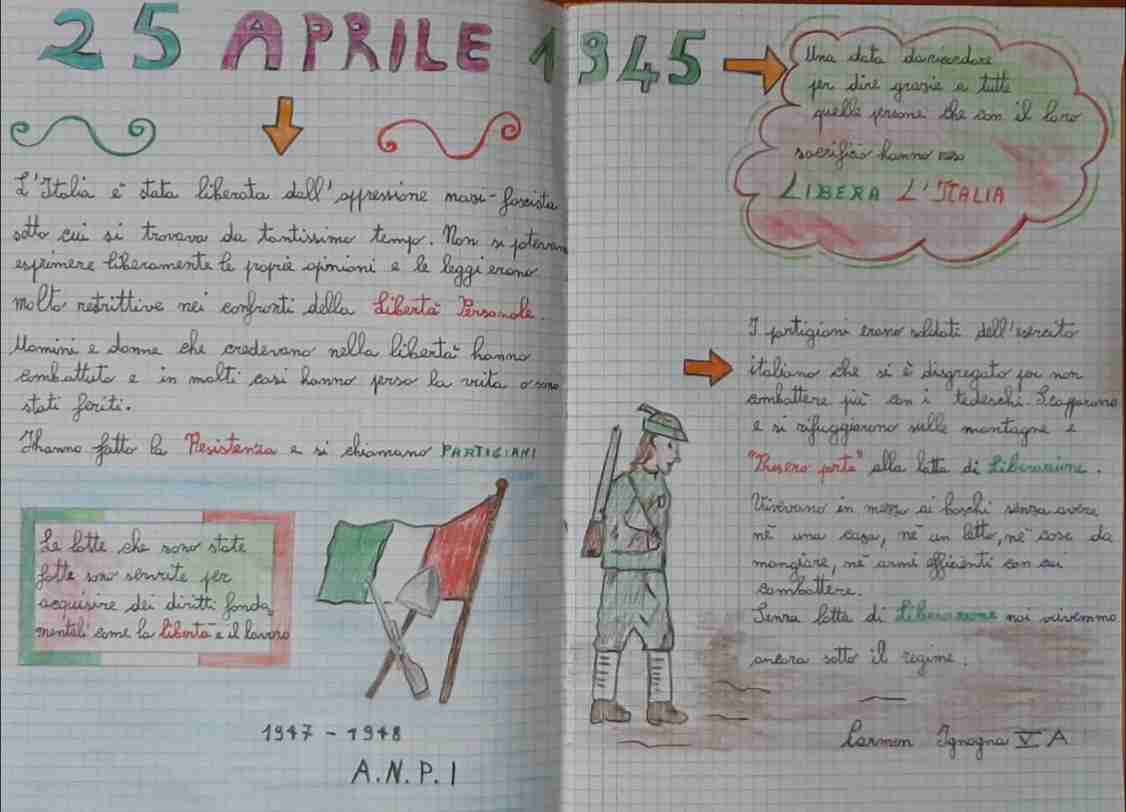 25 APRILE 1945
L'Italia è stata liberata dall'oppressione nazi-fascista
sotto cui si trovava da tantissimo tempo. Non si potevano
esprimere liberamente le proprie opinioni e le leggi erano
molto restrittive nei confronti della Libertà Personale.
Uomini e donne che credevano nella libertà hanno
combattuto e in molti casi hanno perso la vita o sono
stati feriti.
Ihanno fatto la Resistenza e si chiamano PARTIGIANI
Le lotte che sono state
fatte sono servite per
acquisire dei diritti fonda
mentali come la libertà e il lavoro
1947 - 1948
A.N.P.I
Una data da ricordare
per dire grazie a tutte
quelle persone che con il loro
sacrificio hanno reso
LIBERA L'ITALIA
I partigiani erano soldati dell'esercito
italiano che si è disgregato per non
combattere più con i tedeschi. Scapparono
e si rifuggiarono sulle montagne e
"Presero parte" alla lotta di Liberazione.
Vivevano in mezzo ai boschi senza avere
nè una casa, nè un letto, nè cose da
mangiare, nè armi efficienti con cui
combattere.
Senza lotta di Liberazione noi vivremmo
ancora sotto il regime.
Carmen Ignagna V A